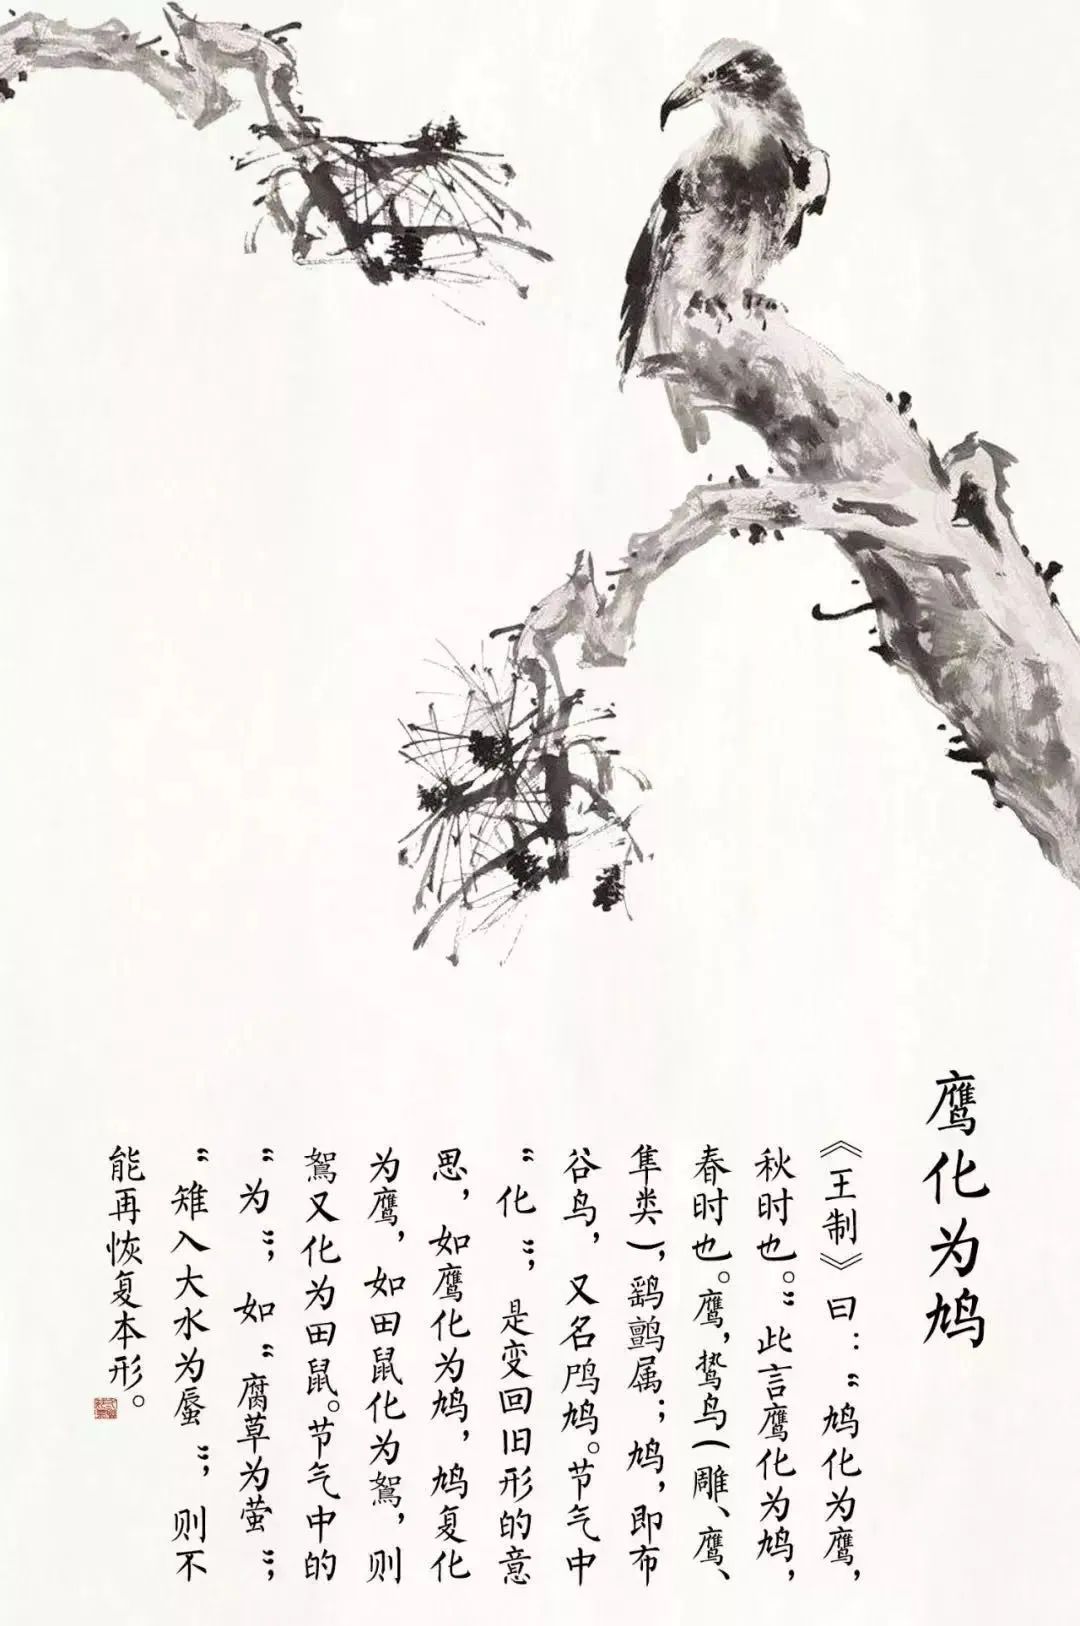 鹰化为鸠
《王制》曰：“鸠化为鹰，
秋时也。”此言鹰化为鸠，
春时也。鹰，鸷鸟（雕、鹰、
隼类），鹞鹯属；鸠，即布
谷鸟，又名鸤鸠。节气中
“化”，是变回旧形的意
思，如鹰化为鸠，鸠复化
为鹰，如田鼠化为鴽，则
鴽又化为田鼠。节气中的
“为”，如“腐草为萤”，
“雉入大水为蜃”，则不
能再恢复本形。